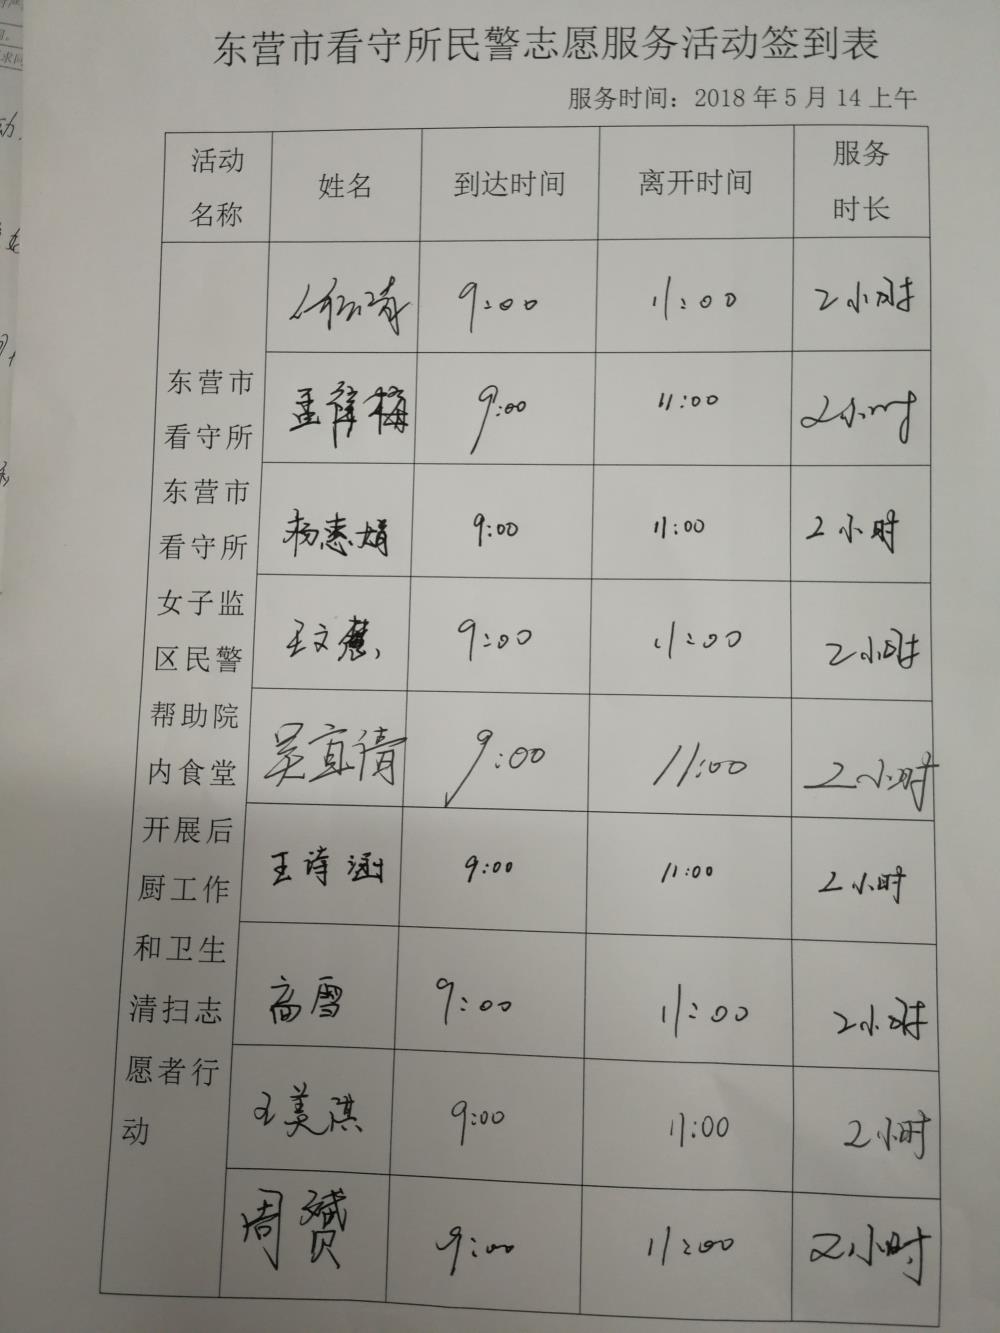 东营市看守所民警志愿服务活动签到表
服务时间：2018年5月14上午
活动名称 姓名 到达时间 离开时间 服务时长
东营市
看守所
东营市
看守所
女子监
区民警
帮助院
内食堂
开展后
厨工作
和卫生
清扫志
愿者行
动
9:00 11:00 2小时
孟祥梅 9:00 11:00 2小时
杨惠娟 9:00 11:00 2小时
王文慧 9:00 11:00 2小时
吴宜清 9:00 11:00 2小时
王诗涵 9:00 11:00 2小时
高雪 9:00 11:00 2小时
王美淇 9:00 11:00 2小时
周赟 9:00 11:00 2小时